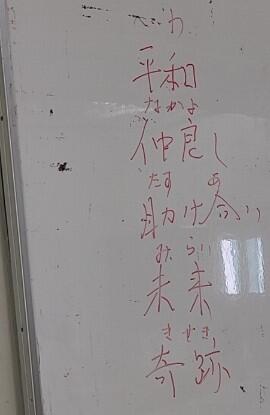 へいわ
平和
なかよ
仲良し
たす あ
助け合い
みらい
未来
きせき
奇跡